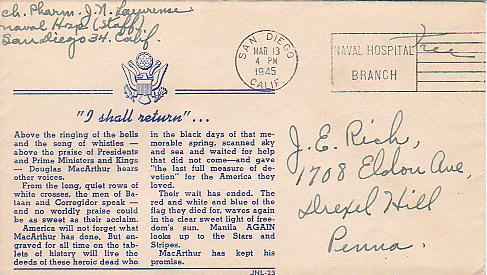 ch. Pharm. J. N. Lawrense
naval Hosp (Staff)
San diego 34. Calif.
SAN DIEGO
MAR 13
4 PM
1945
CALIF.
NAVAL HOSPITAL
BRANCH
Free
"I shall return"...
Above the ringing of the bells
and the song of whistles —
above the praise of Presidents
and Prime Ministers and Kings
— Douglas MacArthur hears
other voices.
From the long, quiet rows of
white crosses, the men of Ba-
taan and Corregidor speak —
and no worldly praise could
be as sweet as their acclaim.
America will not forget what
MacArthur has done, But en-
graved for all time on the tab-
lets of history will live the
deeds of these heroic dead who
in the black days of that me-
morable spring, scanned sky
and sea and waited for help
that did not come—and gave
"the last full measure of de-
votion" for the America they
loved.
Their wait has ended. The
red and white and blue of the
flag they died for, waves again
in the clear sweet light of free-
dom's sun. Manila AGAIN
looks up to the Stars and
Stripes.
MacArthur has kept his
promise.
JNL-23
J. E. Rich,
1708 Eldon Ave,
Drexel Hill
Penna.